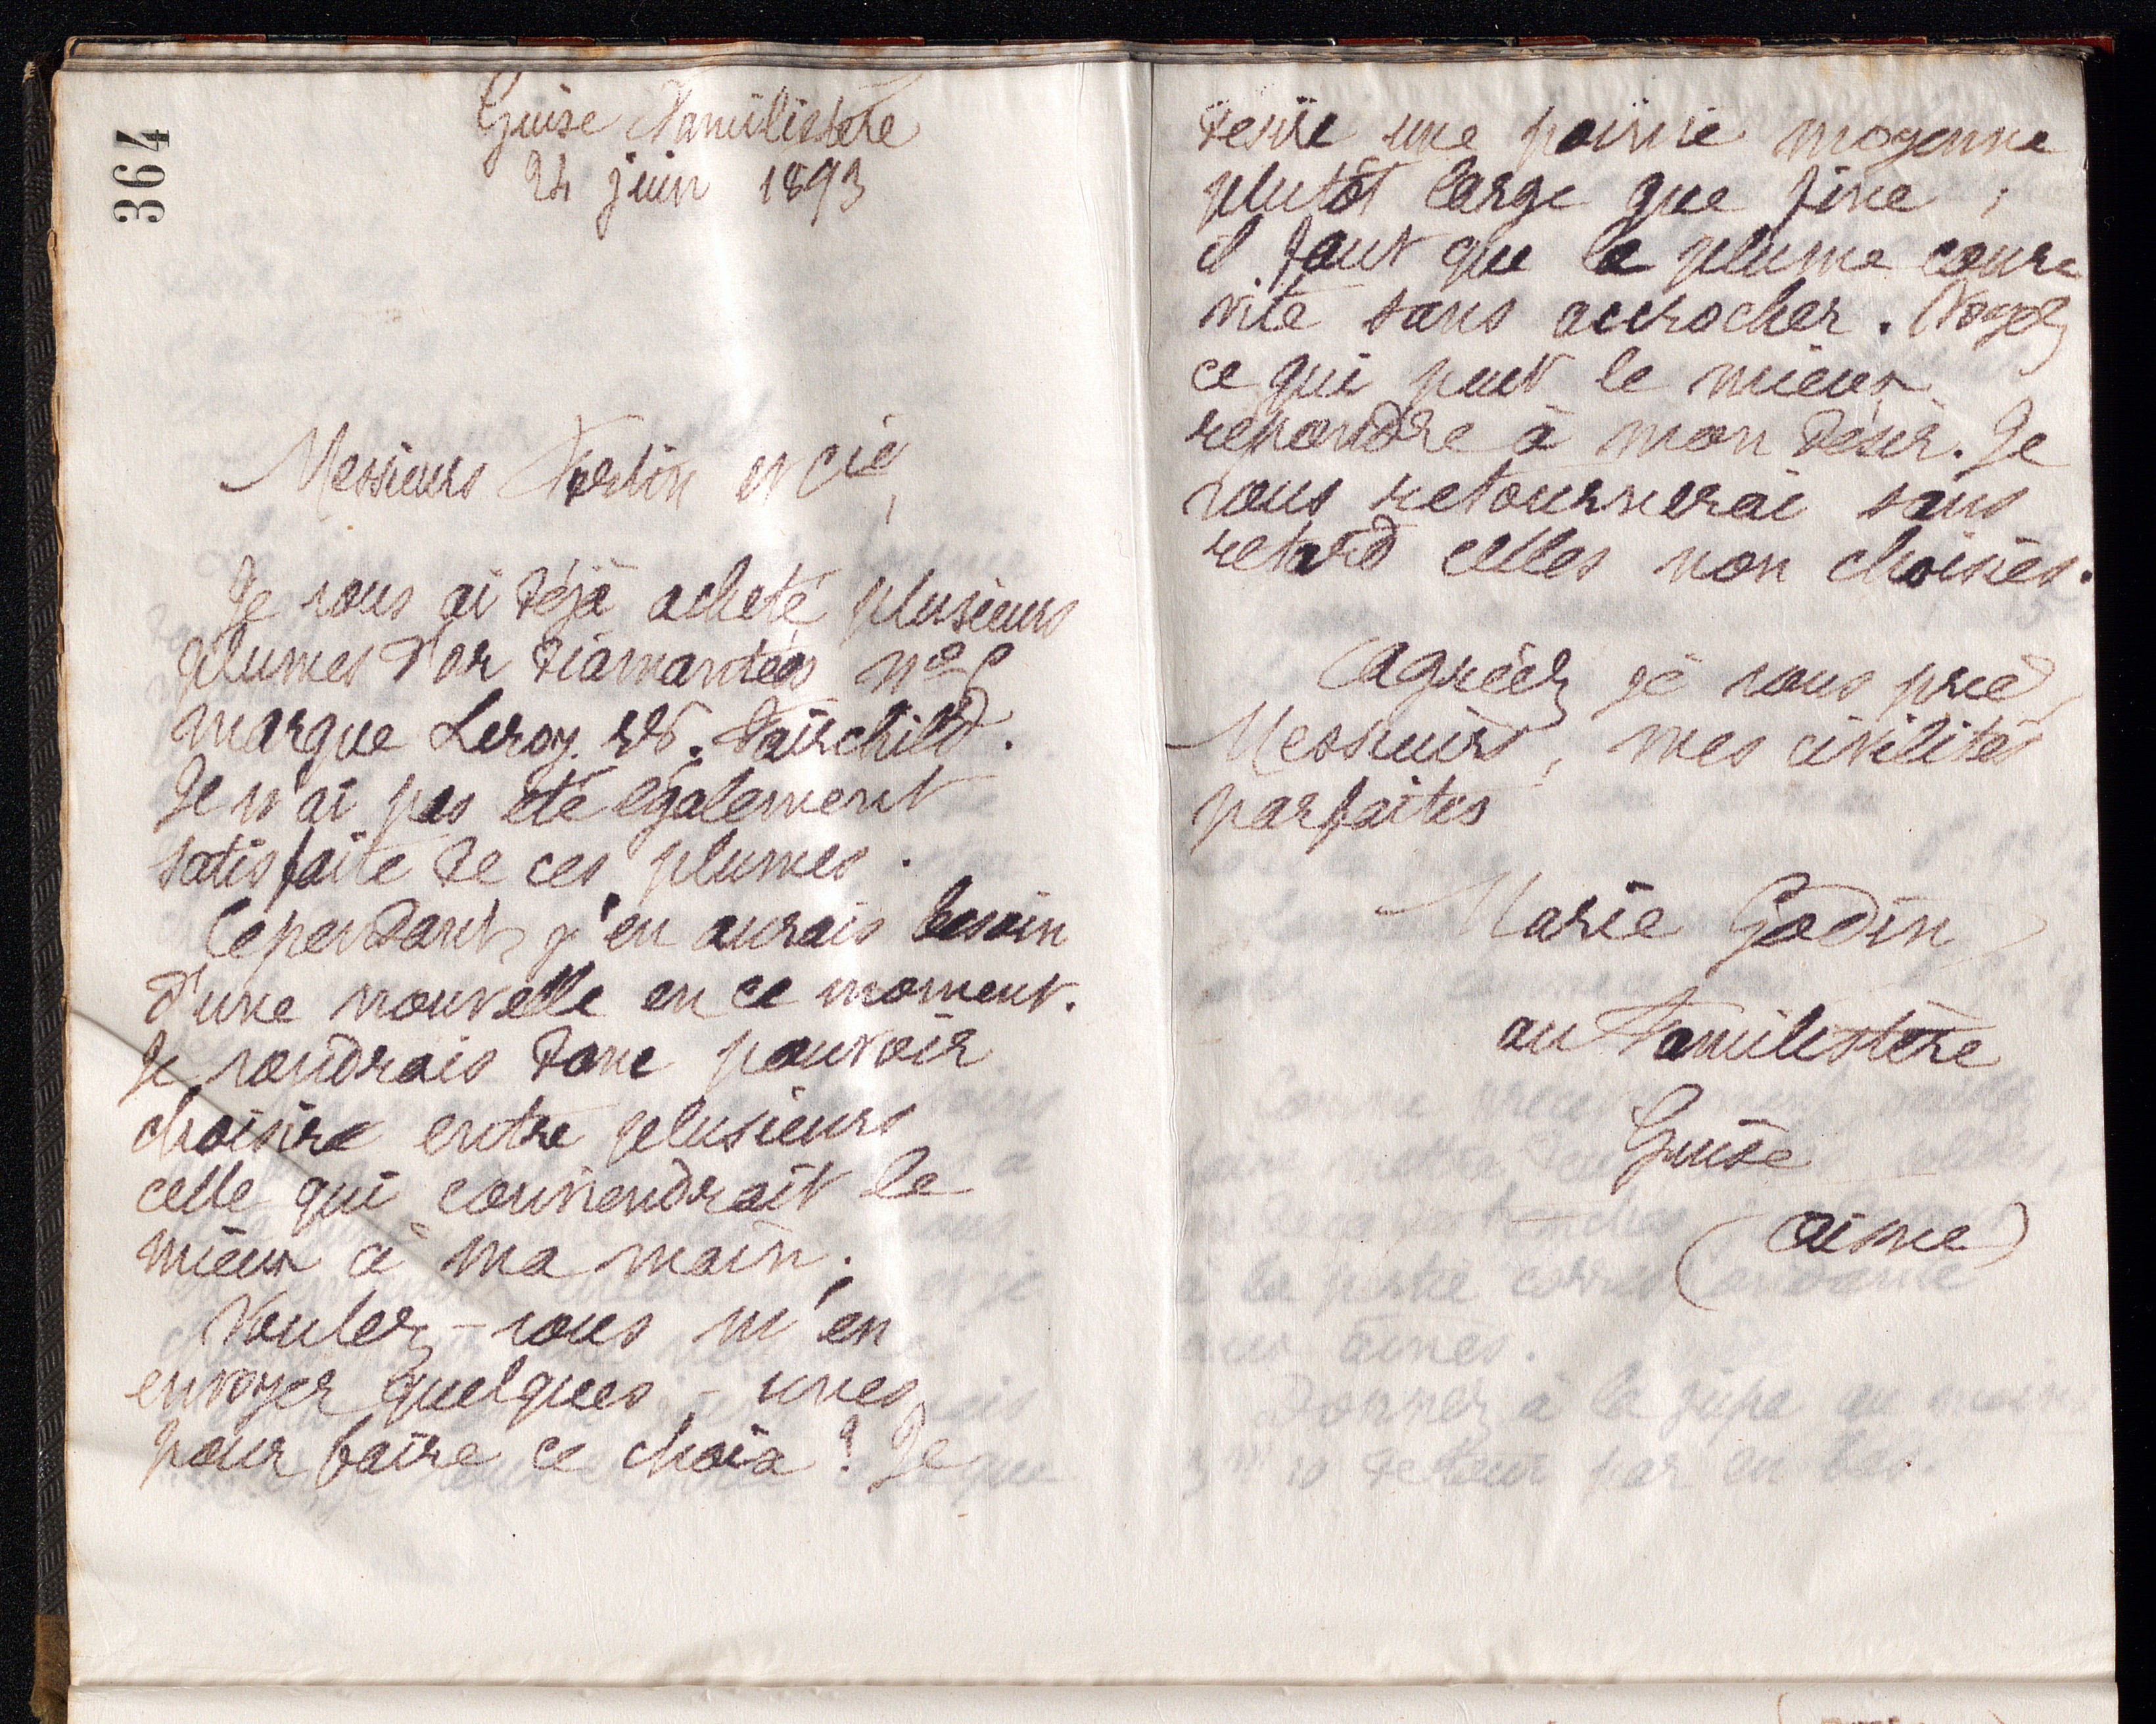 364
Guise Familistère
24 juin 1893
Messieurs Fortin et Cie,
Je vous ai déjà acheté plusieurs
plumes d'or diamantées n°
marque Leroy. W. Fairchild.
Je n'ai pas été également
satisfaite de ces plumes.
Cependant, j'en aurais besoin
d'une nouvelle en ce moment.
Je voudrais donc pouvoir
choisire entre plusieurs
celle qui conviendrait le
mieux à ma main.
Voulez-vous m'en
envoyer quelques-unes
pour faire ce choix ? Je
désire une pointe moyenne
plutôt large que fine ;
il faut que la plume coure
vite sans accrocher. Voyez
ce qui peut le mieux
répondre à mon désir. Je
vous retournerai sans
retard celles non choisies.
Agréez je vous prie,
Messieurs, mes civilités
parfaites
Marie Godin
au Familistère
Guise
(Aisne)